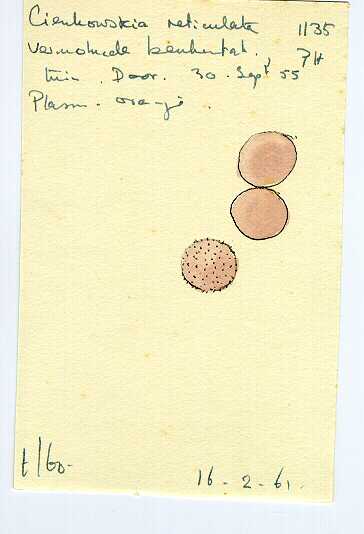 Cienkowskia reticulata 1135
vermolmde beukentak. 7H
tuin. Door. 30. Sept 55
Plasm. oranje.
16-2-61.